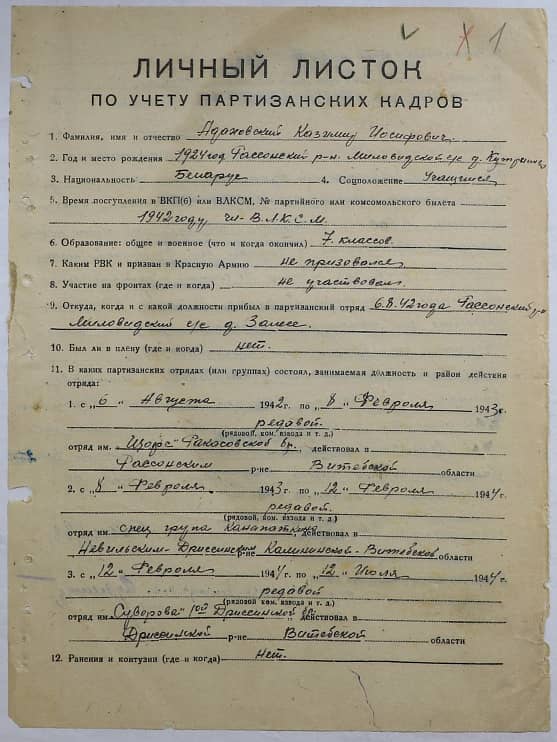 1
ЛИЧНЫЙ ЛИСТОК
ПО УЧЕТУ ПАРТИЗАНСКИХ КАДРОВ
1. Фамилия, имя и отчество Адаховский Казимир Иосифович
2. Год и место рождения 1924 год Рассонский р-н Миловидский с/с д.
3. Национальность Беларус 4. Соцположение Учащийся
5. Время поступления в ВКП(б) или ВЛКСМ, № партийного или комсомольского билета
1942 году, чл-В.Л.К.С.М.
6. Образование: общее и военное (что и когда окончил) 7 классов.
7. Каким РВК и призван в Красную Армию не призовался
8. Участие на фронтах (где и когда) не участвовал
9. Откуда, когда и с какой должности прибыл в партизанский отряд 6.8.42 года Рассонский р-н
Миловидский с/с д.
10. Был ли в плену (где и когда) нет.
11. В каких партизанских отрядах (или группах) состоял, занимаемая должность и район действия
отряда:
1. с „6" Августа 1942 г. по „8" Февроля 1943 г.
редавой.
(рядовой, ком. взвода и т. д.)
отряд им. Щорс" Факасовской бр., действовал в
Рассонским р-не Витебской области
2. с „8" Февроля 1943 г. по „12" Февроля 1944 г.
редавой
(рядовой, ком. взвода и т. д.)
отряд им. спец група действовал в
Невильским-Дриссинским р-не Калининской-Витебской области
3. с „12" Февроля 1944 г. по „12" Июля 1944 г.
редавой
(рядовой ком. взвода и т. д.)
отряд им. Суворова" 1ой Дриссинской действовал в
р-не Витебской области
12. Ранения и контузии (где и когда) Нет.